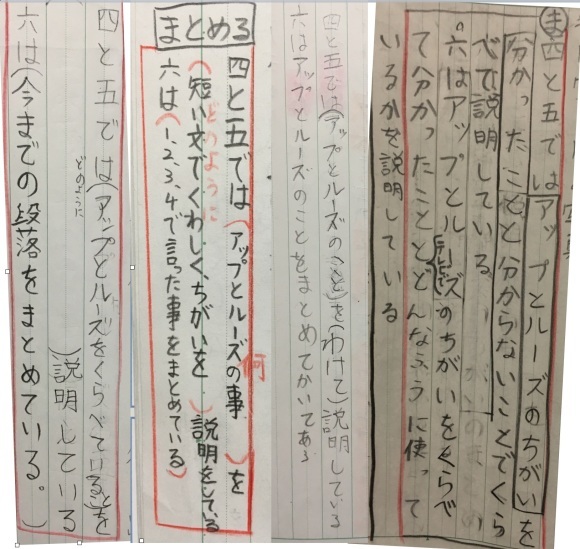 ま 四と五では アップとルーズのちがいを
分かったことと分からないことでくら
べて説明している。
六はアップとルーズのちがいをくらべ
て分かったことどんなふうに使って
いるかを説明している
四と五では(アップとルーズのこと)を(わけて)説明している
六はアップとルーズのことをまとめてかいてある
まとめる
四と五では(アップとルーズの事)を
何
(短い文でくわしく、ちがいを)説明をしている
どのように
六は(1、2、3、4で言った事をまとめている)
四と五では(アップとルーズをくらべていること)を
どのように
)説明している
六は(今までの段落をまとめている。)